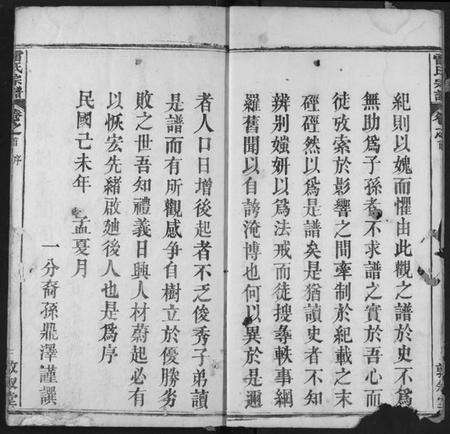 雷氏宗譜
卷之首
紀則以媿而懼由此觀之譜於史不為
無助為子孫者不求譜之實於吾心而
徒攷索於影響之間牽制於紀載之末
硜硜然以為是譜矣是猶讀史者不知
辨別媸妍以為法戒而徒搜尋軼事網
羅舊聞以自誇淹博也何以異於是邇
敦叙堂
雷氏宗譜
卷之首 序
者人口日增後起者不乏俊秀子弟讀
是譜而有所觀感爭自樹立於優勝劣
敗之世吾知禮義日興人材蔚起必有
以恢宏先緒啟迆後人也是為序
民國己未年 孟夏月
一分裔孫鼎澤謹譔
敦叙堂